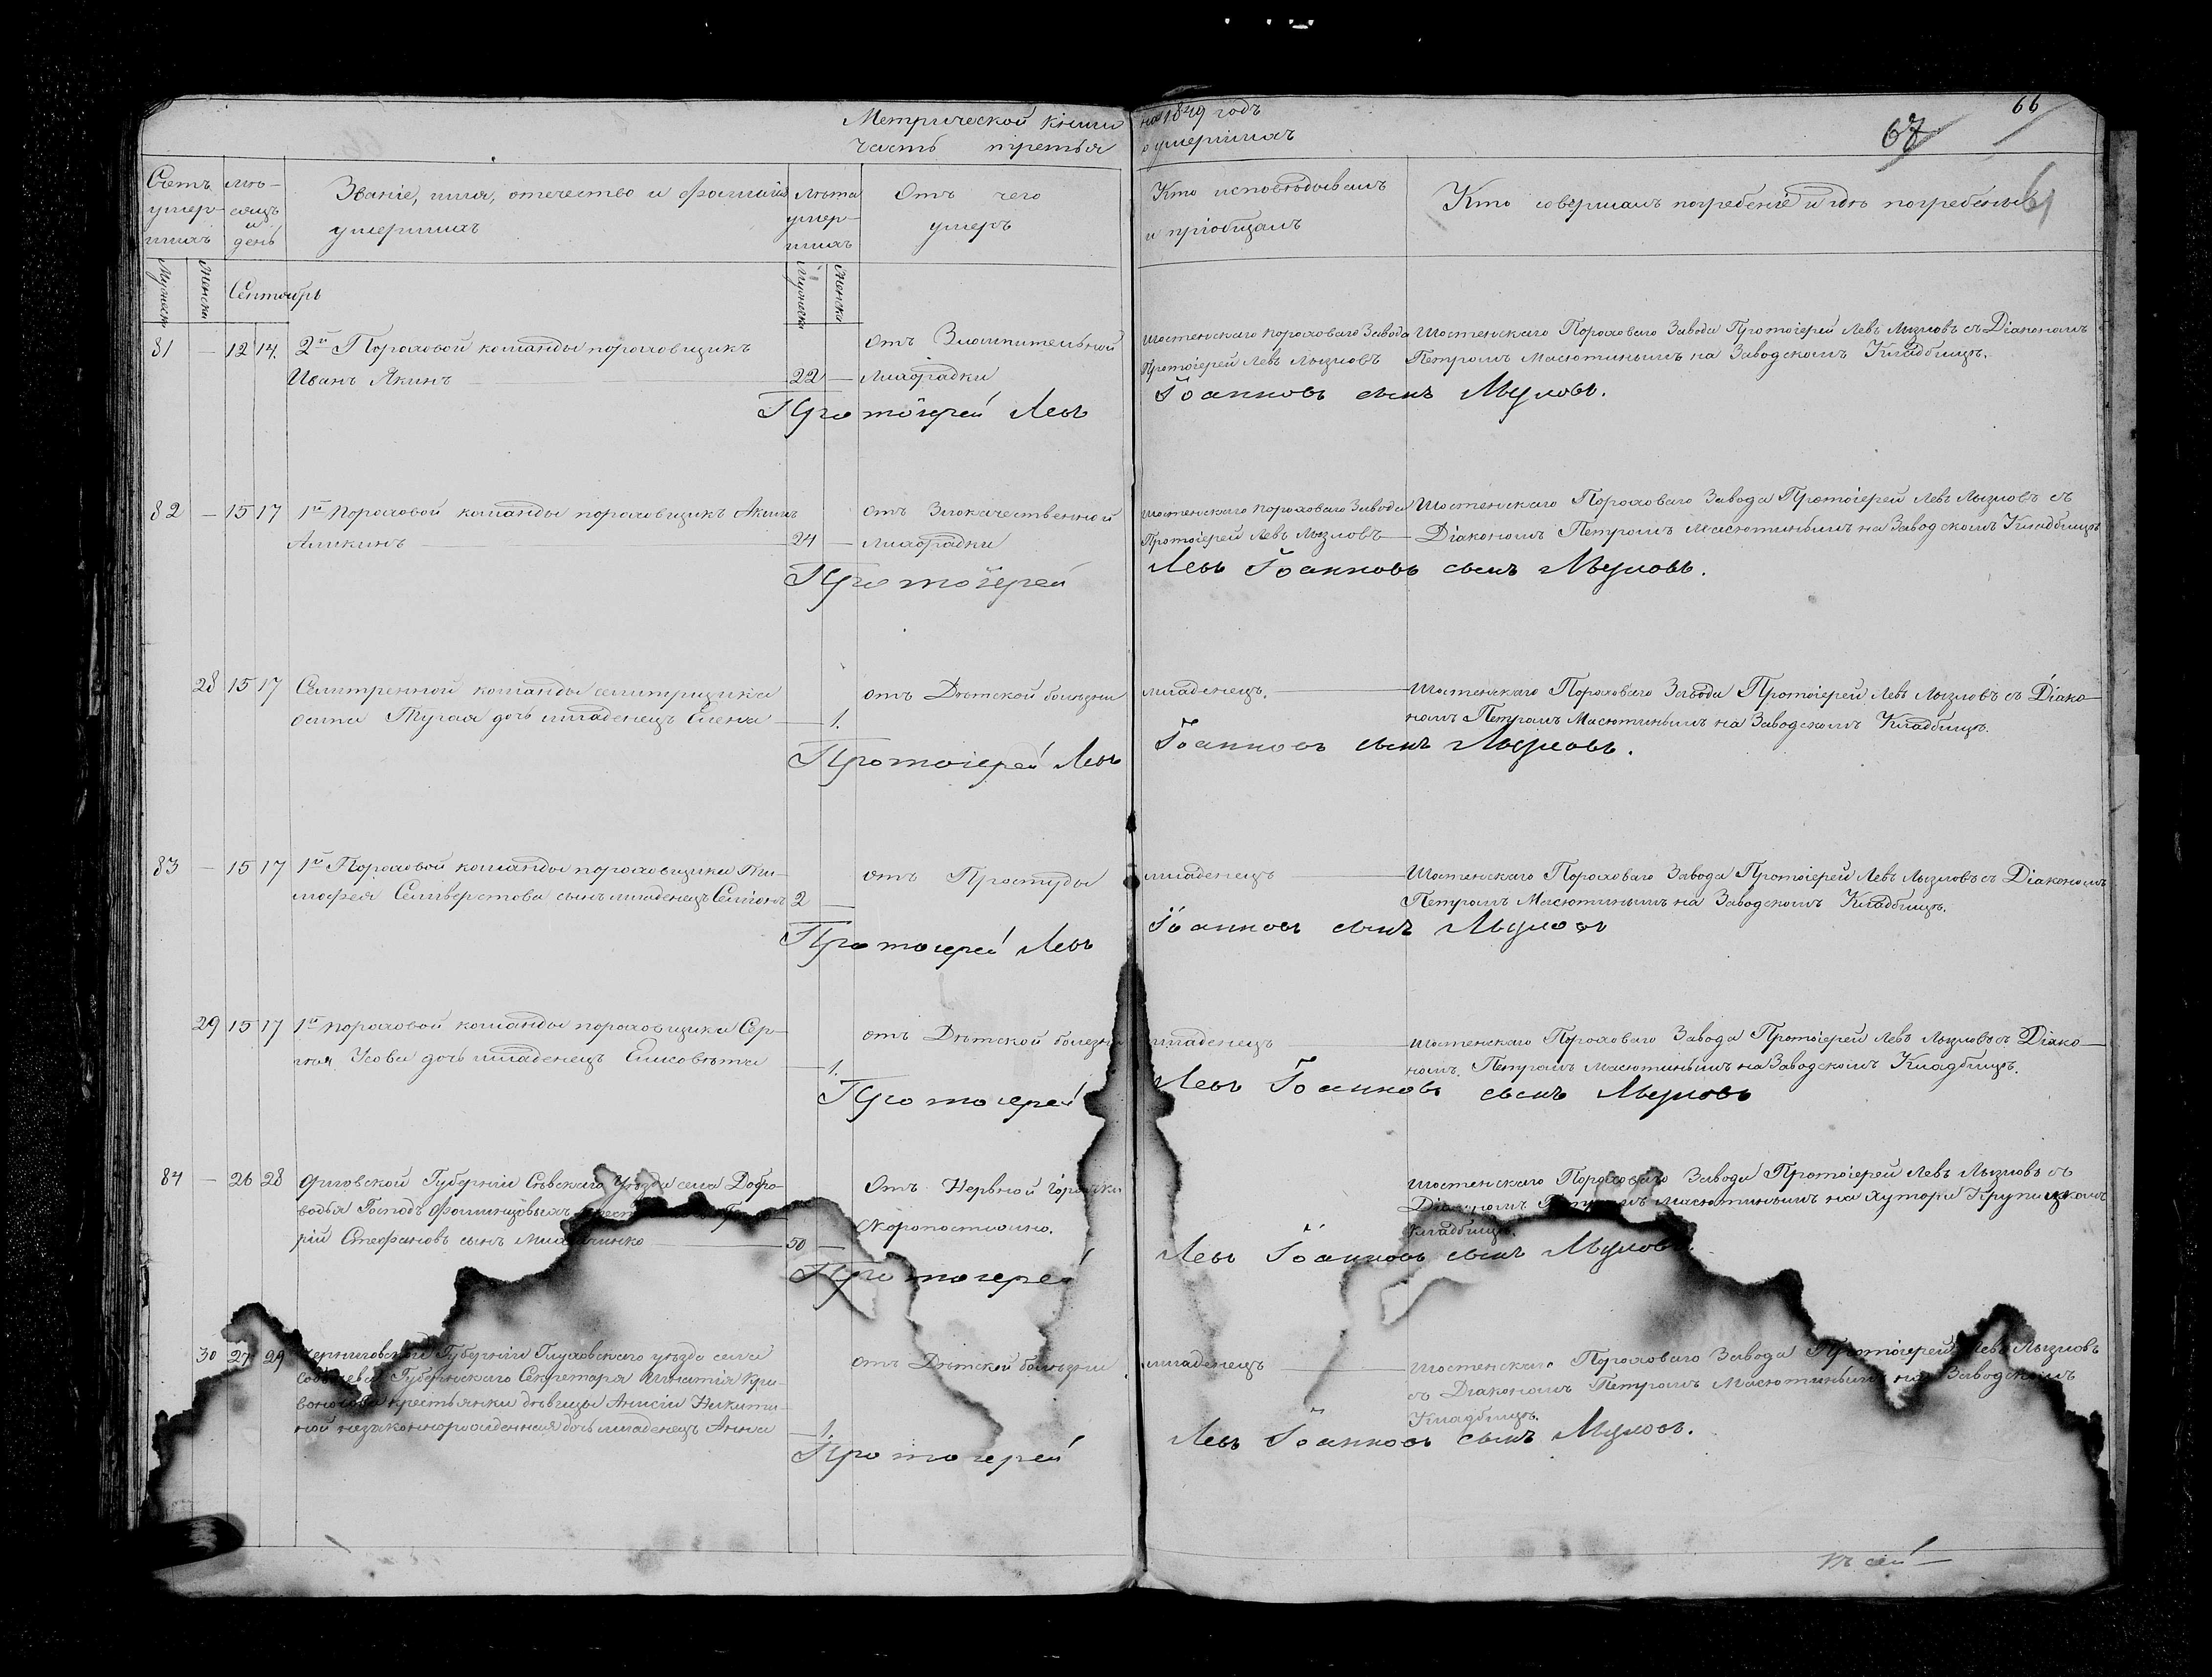 Метрической книги на 1849 годъ
часть третья о умершихъ
66
67
61
Счетъ умершихъ
Мѣсяцъ и день
Званіе, имя, отечество и фамилія умершихъ
Лѣта умершихъ
Отъ чего умеръ
Кто исповѣдывалъ и пріобщалъ
Кто совершалъ погребеніе и гдѣ погребены
Мужеска Женска
Сентябрь
Мужеска Женска
81 — 12 14 2й Пороховой команды пороховщикъ
Иванъ Якинъ — 22 —
отъ Изнурительной
лихорадки
Шостенскаго Пороховаго Завода
Протоіерей Левъ Лызловъ
Шостенскаго Пороховаго Завода Протоіерей Левъ Лызловъ съ Діакономъ
Петромъ Масютинымъ на Заводскомъ Кладбищѣ.
Протоіерей Левъ Іоанновъ сынъ Лызловъ.
82 — 15 17 1й Пороховой команды пороховщикъ Акимъ
Аликинъ — 24 —
отъ Злокачественной
лихорадки
Шостенскаго Пороховаго Завода
Протоіерей Левъ Лызловъ
Шостенскаго Пороховаго Завода Протоіерей Левъ Лызловъ съ
Діакономъ Петромъ Масютинымъ на Заводскомъ Кладбищѣ
Протоіерей Левъ Іоанновъ сынъ Лызловъ.
28 15 17 Селитренной команды селитрщика
дочь младенецъ Елена — 1.
отъ Дѣтской болѣзни
младенецъ.
Шостенскаго Пороховаго Завода Протоіерей Левъ Лызловъ съ Діако-
номъ Петромъ Масютинымъ на Заводскомъ Кладбищѣ.
Протоіерей Левъ Іоанновъ сынъ Лызловъ.
83 — 15 17 1й Пороховой команды пороховщика Ти-
мофея Селиверстова сынъ младенецъ Симіонъ 2 —
отъ Простуды
младенецъ
Шостенскаго Пороховаго Завода Протоіерей Левъ Лызловъ съ Діакономъ
Петромъ Масютинымъ на Заводскомъ Кладбищѣ.
Протоіерей Левъ Іоанновъ сынъ Лызловъ
29 15 17 1й пороховой команды пороховщика Сер-
гѣя Усова дочь младенецъ Елисовѣта — 1.
отъ Дѣтской болезни
младенецъ
Шостенскаго Пороховаго Завода Протоіерей Левъ Лызловъ съ Діако-
номъ Петромъ Масютинымъ на Заводскомъ Кладбищѣ.
Протоіерей Левъ Іоанновъ сынъ Лызловъ
84 — 26 28 Орловской Губерніи Сѣвскаго уѣзда села Добро-
водья Господъ
рій Стефановъ сынъ — 50 —
Отъ Нервной Горячки
Скоропостижно.
Шостенскаго Пороховаго Завода Протоіерей Левъ Лызловъ съ
Діакономъ Петромъ Масютинымъ на хуторѣ
Кладбищѣ.
Протоіерей Левъ Іоанновъ сынъ Лызловъ.
30 27 29 Черниговской Губерніи Глуховскаго уѣзда села
Губернскаго Секретаря Игнатія Кри-
крестьянки дѣвицы Анисіи Никити-
ной незаконнорожденная дочь младенецъ Анна — 1.
отъ Дѣтской болѣзни
младенецъ
Шостенскаго Пороховаго Завода Протоіерей Левъ Лызловъ
съ Діакономъ Петромъ Масютинымъ на Заводскомъ
Кладбищѣ.
Протоіерей Левъ Іоанновъ сынъ Лызловъ.